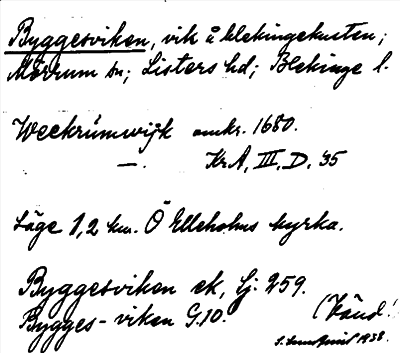 Byggesviken, vik å blekingekusten;
Mörrum sn; Listers hd; Blekinge l.
Weekrümwijk omkr. 1680.
—. Kr.A, III, D. 35
Läge 1,2 km. Ö Elleholms kyrka.
Byggesviken ek, Lj. 259.
Bygges-viken G.10. (Vänd!
1938.